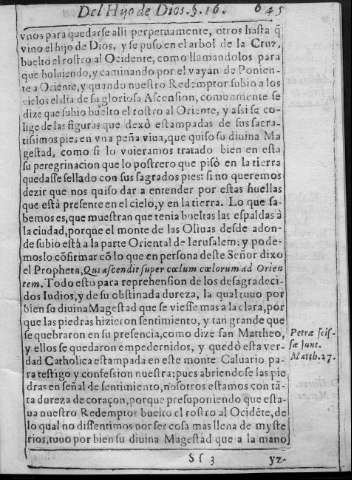 Del Hijo de Dios. §. 16. 645
vnos para quedarse alli perpetuamente, otros hasta q̃
vino el hijo de Dios, y se puso en el arbol de la Cruz,
buelto el rostro al Ocidente, como llamandolos para
que boluiendo, y caminando por el vayan de Ponien-
te a Oriente, y quando nuestro Redemptor subio a los
cielos el dia de su gloriosa Ascension, comunmente se
dize que subio buelto el rostro al Oriente, y assi se co-
lige de las figuras que dexò estampadas de sus sacra-
tissimos pies en vna peña viua, que quiso su diuina Ma
gestad, como si lo vuieramos tratado bien en esta
su peregrinacion que lo postrero que pisò en la tierra
quedasse sellado con sus sagrados pies: si no queremos
dezir que nos quiso dar a entender por estas huellas
que està presente en el cielo, y en la tierra. Lo que sa-
bemos es, que muestran que tenia bueltas las espaldas à
la ciudad, porque el monte de las Oliuas desde adon-
de subio està a la parte Oriental de Ierusalem: y pode-
moslo cõfirmar cõ lo que en persona deste Señor dixo
el Propheta, Qui ascendit super cœlum cœlorum ad Orien
tem. Todo esto para reprehension de los desagradeci-
dos Iudios, y de su obstinada dureza, la qual tuuo por
bien su diuina Magestad que se viesse mas a la clara, por
que las piedras hizieron sentimiento, y tan grande que
se quebraron en su presencia, como dize san Mattheo,
y ellos se quedaron empedernidos, y quedò esta ver-
dad Catholica estampada en este monte Caluario pa
ra testigo y confession nuestra: pues abriendose las pie
dras en señal de sentimiento, nosotros estamos con tã-
ta dureza de coraçon, porque presuponiendo que esta-
ua nuestro Redemptor buelto el rostro al Ocidẽte, de
lo qual no dissentimos por ser cosa mas llena de myste
rios, tuuo por bien su diuina Magestad que a la mano
Petræ scis-
sæ sunt.
Matth. 27.
Sf 3 yz-